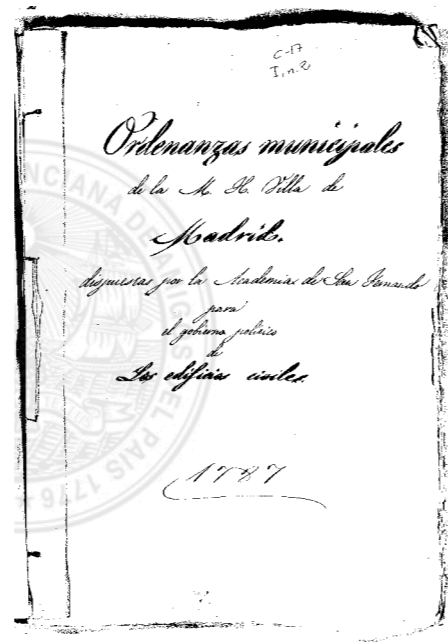 C-17
I, n. 2
Ordenanzas municipales
de la M. H. Villa de
Madrid.
dispuestas por la Academia de San Fernando
para
el gobierno político
de
Los edificios civiles.
1787